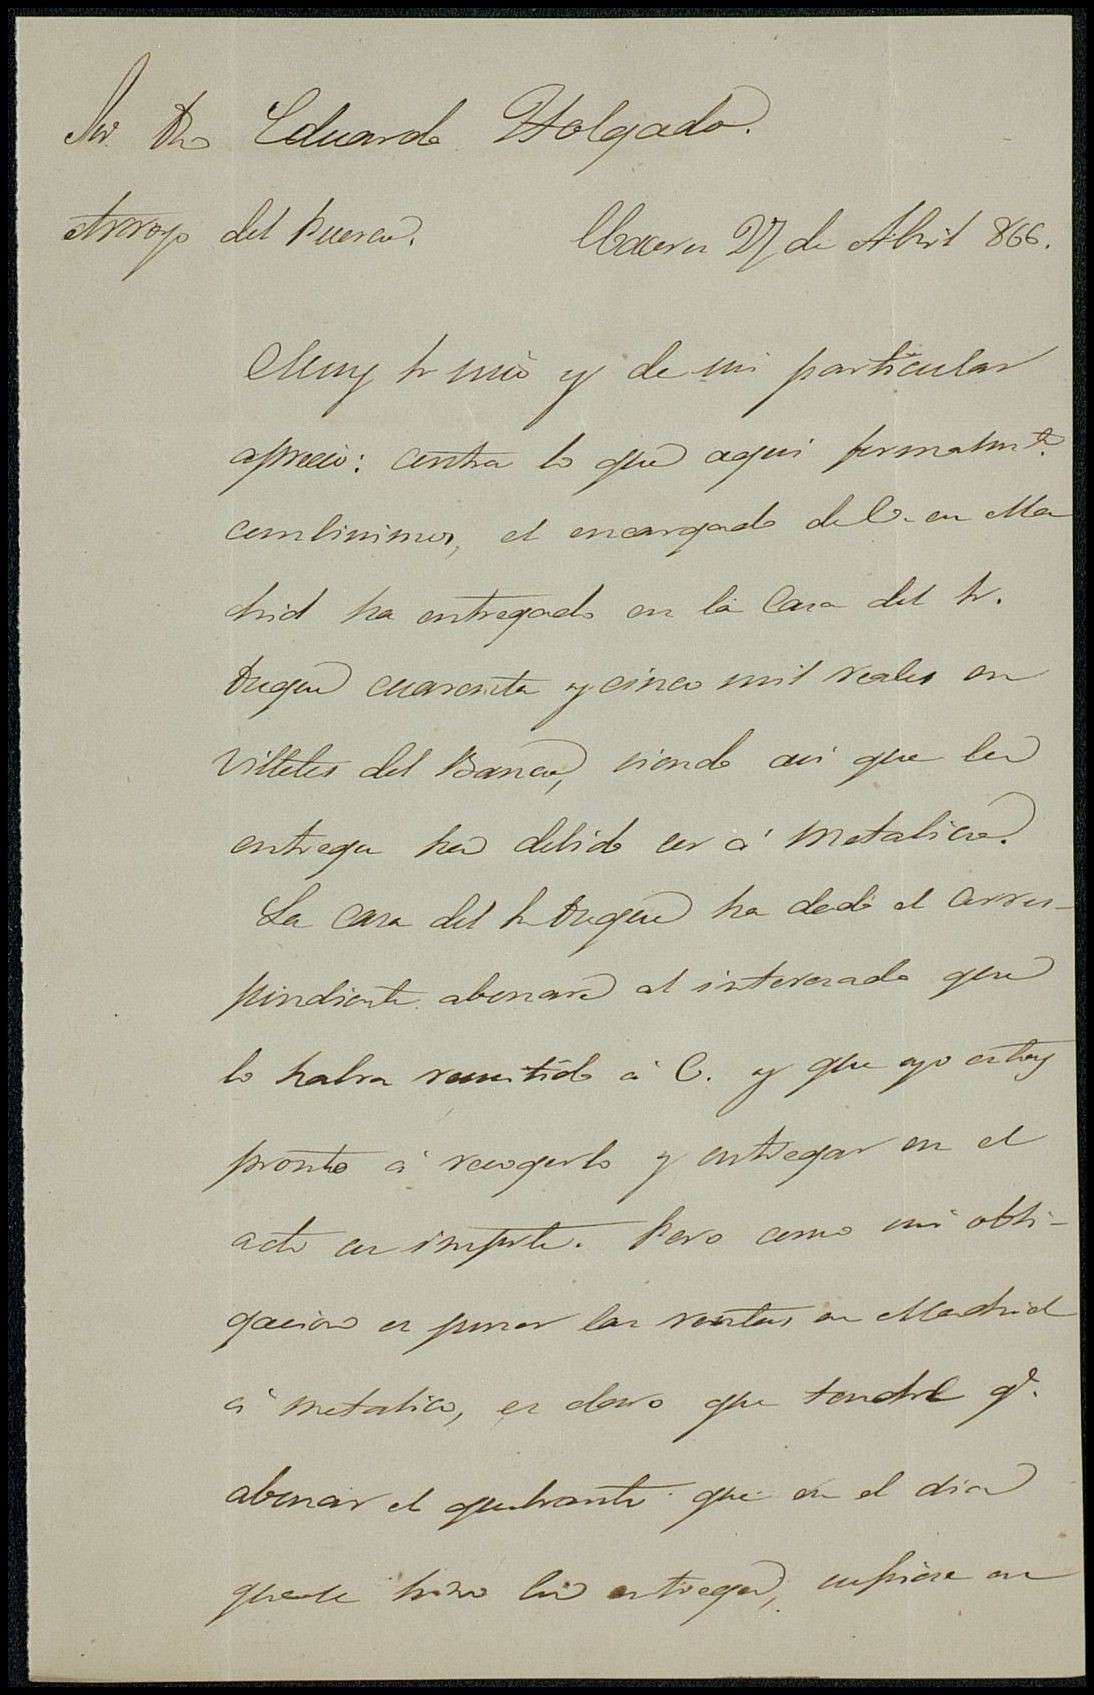 Sor. Dn Eduardo Holgado.
Arroyo del Puerco. Caceres 27 de Abril 866.
Muy Sr mio y de mi particular
aprecio: contra lo que aqui formalmte.
combinimos, el encargado de V. en Ma
drid ha entregado en la Casa del Sr.
Duque cuarenta y cinco mil reales en
villetes del Banco, siendo asi que la
entrega ha debido ser á metalico.
La casa del Sr Duque ha dado el corres-
pondiente abonaré al interesado que
lo habra remitido á V. y que yo estoy
pronto á recogerlo y entregar en el
acto su importe. Pero como mi obli-
gacion es poner las rentas en Madrid
á metalico, es claro que tendré qe.
abonar el quebranto que en el dia
que se hizo la entrega, sufriese en